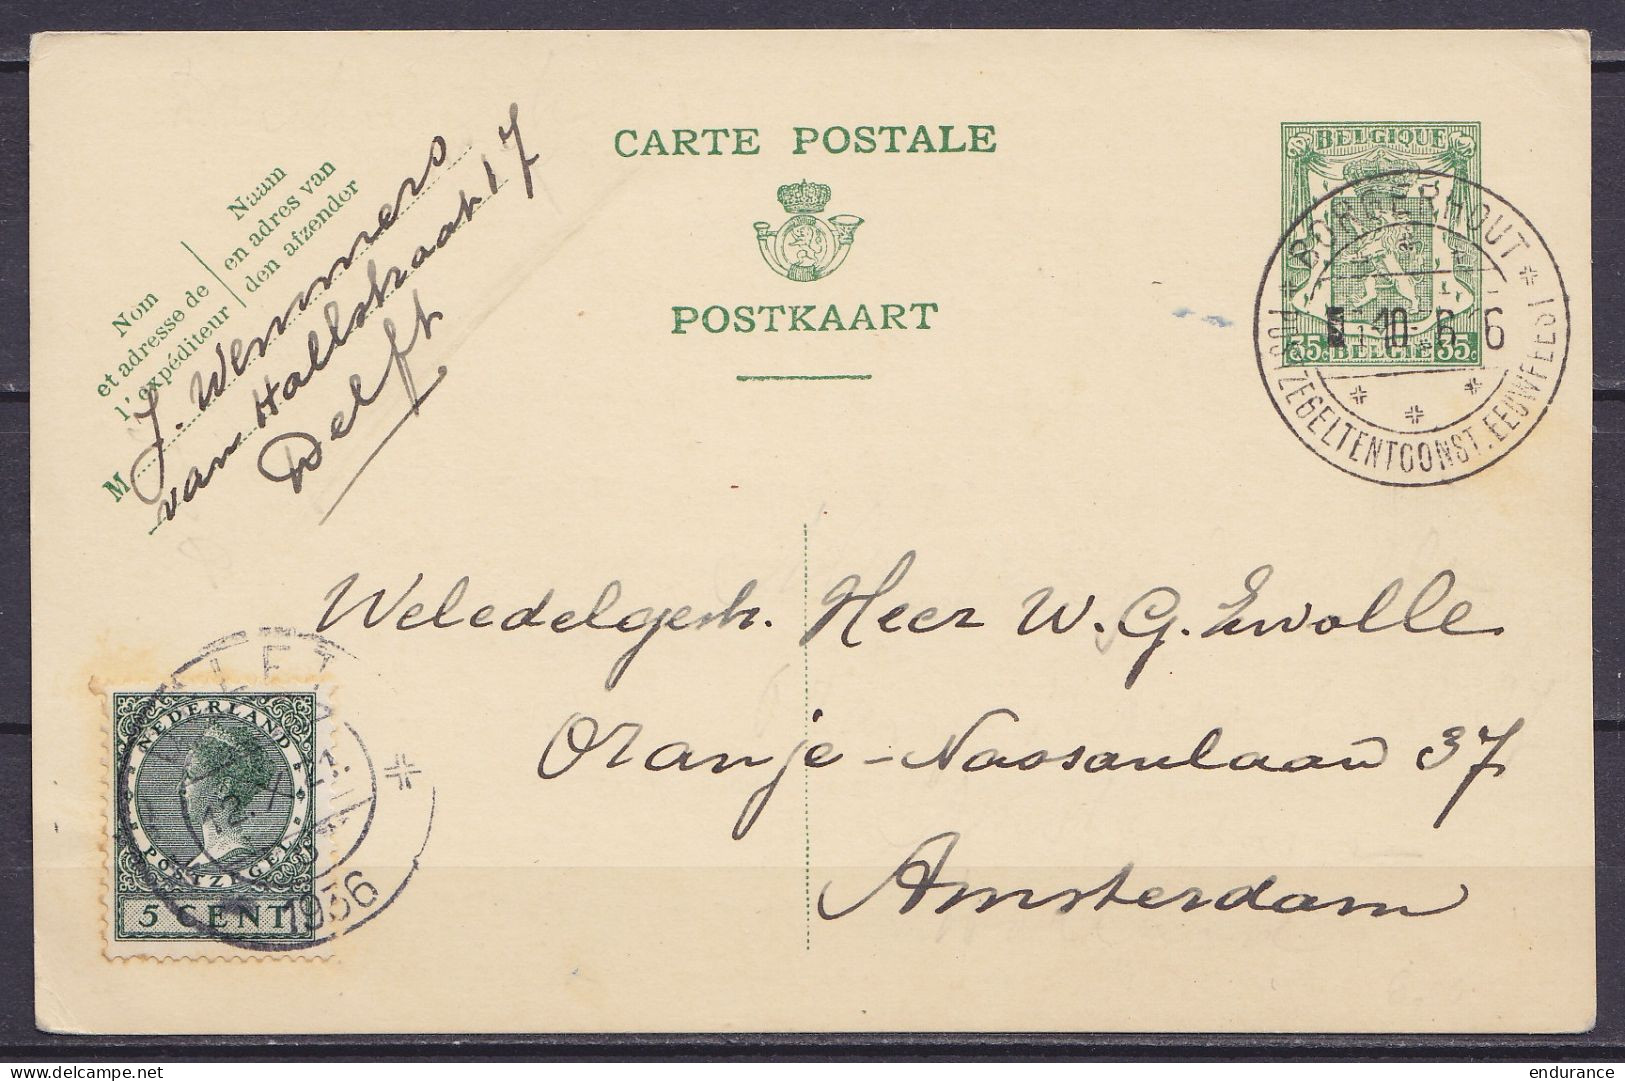 CARTE POSTALE
POSTKAART
Nom
et adresse de
l'expéditeur
Naam
en adres van
den afzender
M
J. Wemmers
van Hallstraat 17
Delft
BELGIQUE
35c BELGIË 35c
BORGERHOUT
POSTZEGELTENTOONST. EEUWFEEST
10 6
Weledelgestr. Heer W. G. Zwolle
Oranje-Nassaulaan 37
Amsterdam
NEDERLAND
POSTZEGEL
5 CENT
12. X
1936
delcampe.net
endurance